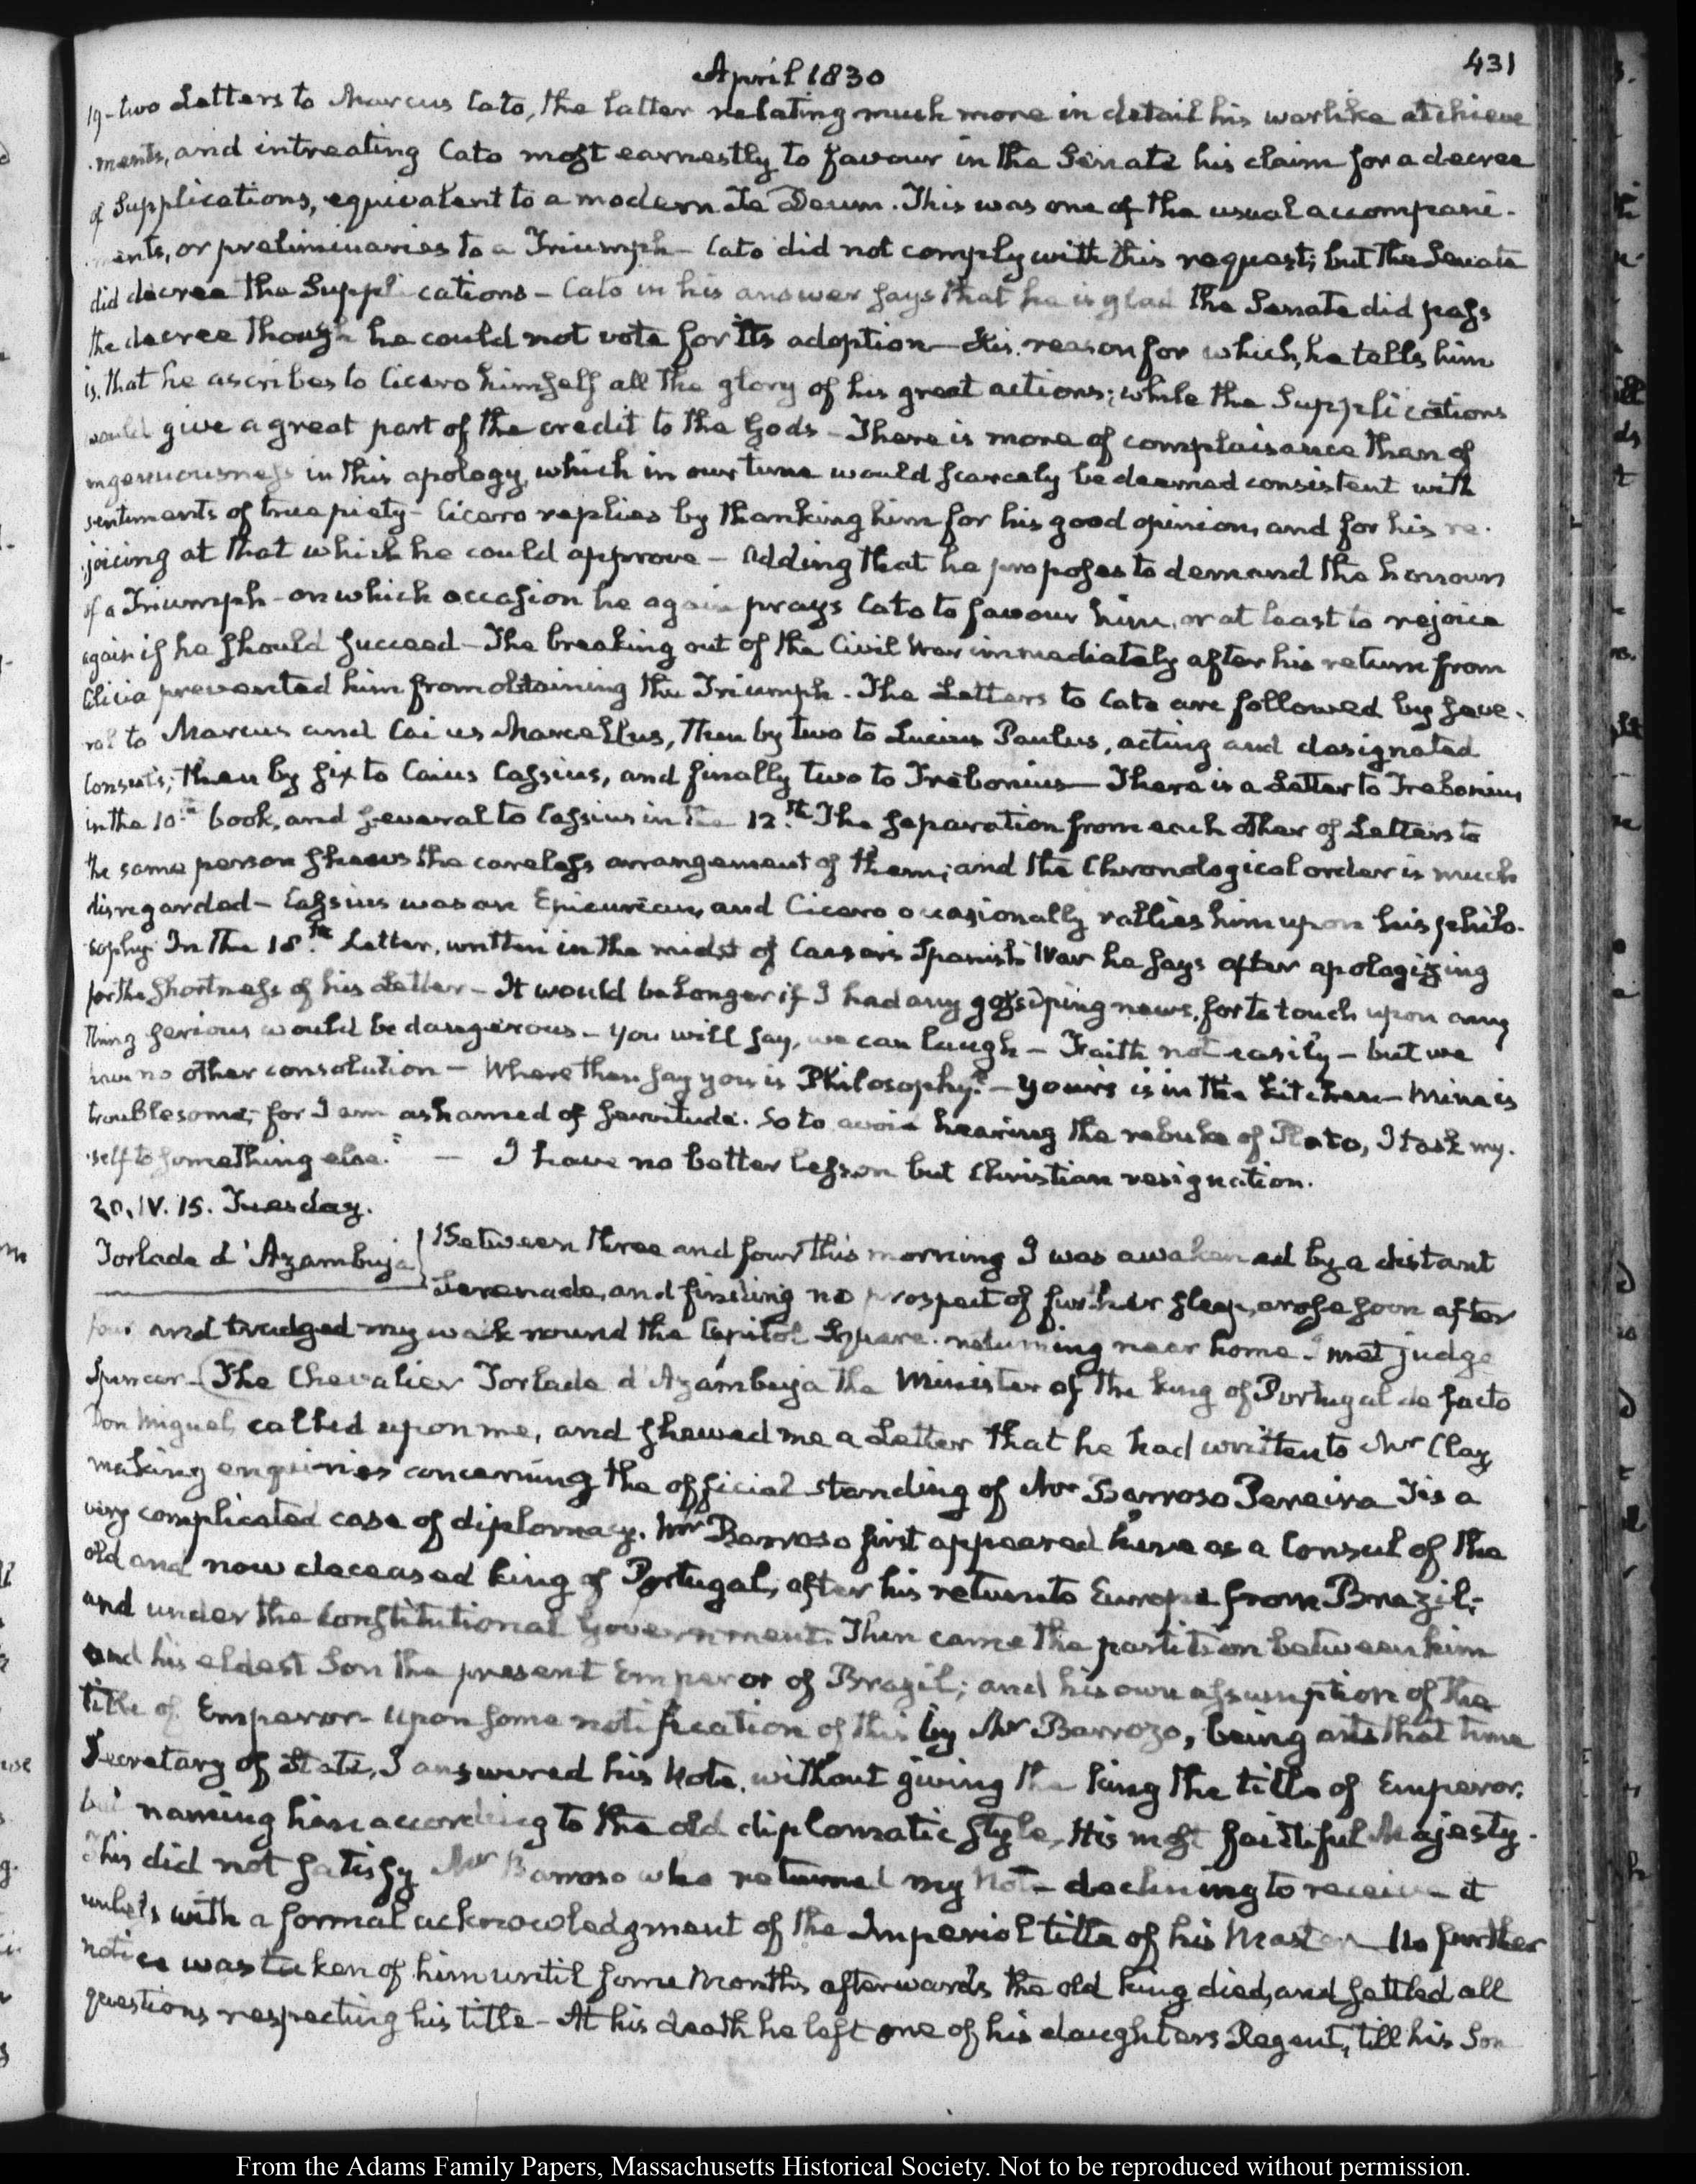 April 1830
431
19 - two Letters to Marcus Cato, the latter relating much more in detail his warlike atchieve
-ments, and intreating Cato most earnestly to favour in the Senate his claim for a decree
of Supplications, equivalent to a modern Te Deum. This was one of the usual accompani-
-ments, or preliminaries to a Triumph - Cato did not comply with this request; but the Senate
did decree the Supplications - Cato in his answer says that he is glad the Senate did pass
the decree though he could not vote for its adoption - His reason for which, he tells him
is, that he ascribes to Cicero himself all the glory of his great actions; while the Supplications
would give a great part of the credit to the Gods - There is more of complaisance than of
ingenuousness in this apology, which in our time would scarcely be deemed consistent with
sentiments of true piety - Cicero replies by thanking him for his good opinion, and for his re-
-joicing at that which he could approve - adding that he proposes to demand the honours
of a Triumph - on which occasion he again prays Cato to favour him, or at least to rejoice
again if he should succeed - The breaking out of the Civil War immediately after his return from
Cilicia prevented him from obtaining the Triumph. The Letters to Cato are followed by seve-
ral to Marcus and Caius Marcellus, then by two to Lucius Paulus, acting and designated
Consuls; then by six to Caius Cassius, and finally two to Trebonius - There is a Letter to Trebonius
in the 10th book, and several to Cassius in the 12th. The separation from each other of Letters to
the same person shews the careless arrangement of them; and the Chronological order is much
disregarded - Cassius was an Epicurean, and Cicero occasionally rallies him upon his philo-
-sophy. In the 18th Letter, written in the midst of Caesar's Spanish War he says after apologizing
for the shortness of his Letter - It would be longer if I had any gossiping news, for to touch upon any
thing serious would be dangerous - You will say, we can laugh - Faith not easily - but we
have no other consolation - Where then say you is Philosophy? - yours is in the kitchen - Mine is
troublesome; for I am ashamed of servitude. So to avoid hearing the rebuke of Plato, I task my-
-self to something else." - I have no better lesson but Christian resignation.
20. IV. 15. Tuesday.
Torlade d'Azambuja
Between three and four this morning I was awakened by a distant
Serenade, and finding no prospect of further sleep, arose soon after
four and trudged my walk round the Capitol Square. returning near home I met judge
Spencer - The Chevalier Torlade d'Azambuja the Minister of the king of Portugal de facto
Don Miguel, called upon me, and shewed me a Letter that he had written to Mr Clay
making enquiries concerning the official standing of Mr Barroso Pereira Tis a
very complicated case of diplomacy. Mr Barroso first appeared here as a Consul of the
old and now deceased king of Portugal, after his return to Europe from Brazil;
and under the Constitutional Government. Then came the partition between him
and his eldest Son the present Emperor of Brazil; and his own assumption of the
title of Emperor - Upon some notification of this by Mr Barrozo, being at that time
Secretary of State, I answered his Note, without giving the king the title of Emperor,
but naming him according to the old diplomatic style, His most faithful Majesty.
This did not satisfy Mr Barroso who returned my Note - declining to receive it
unless with a formal acknowledgment of the Imperial title of his Master - No further
notice was taken of him until some Months afterwards the old king died, and settled all
questions respecting his title - At his death he left one of his daughters Regent, till his Son
From the Adams Family Papers, Massachusetts Historical Society. Not to be reproduced without permission.